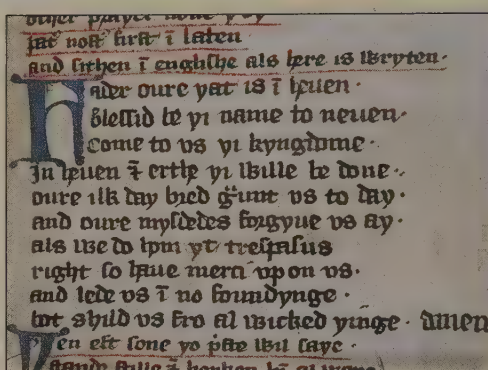 other prayer none
pat nost first ī laten
and sithen ī englishe als here is wryten·
Fader oure yat is ī heuen·
blessid be yi name to neuen·
Come to vs yi kyngdome·
In heuen ⁊ erthe yi wille be done·
oure ilk day bred gᵃunt vs to day·
and oure mysdedes forgyue vs ay·
als we do hym yt trespasus
right so haue merci vp on vs·
and lede vs ī no foundynge·
bot shild vs fro al wicked yinge· amen
Yen eft sone yo pste wil saye·
stande stille ⁊ herken